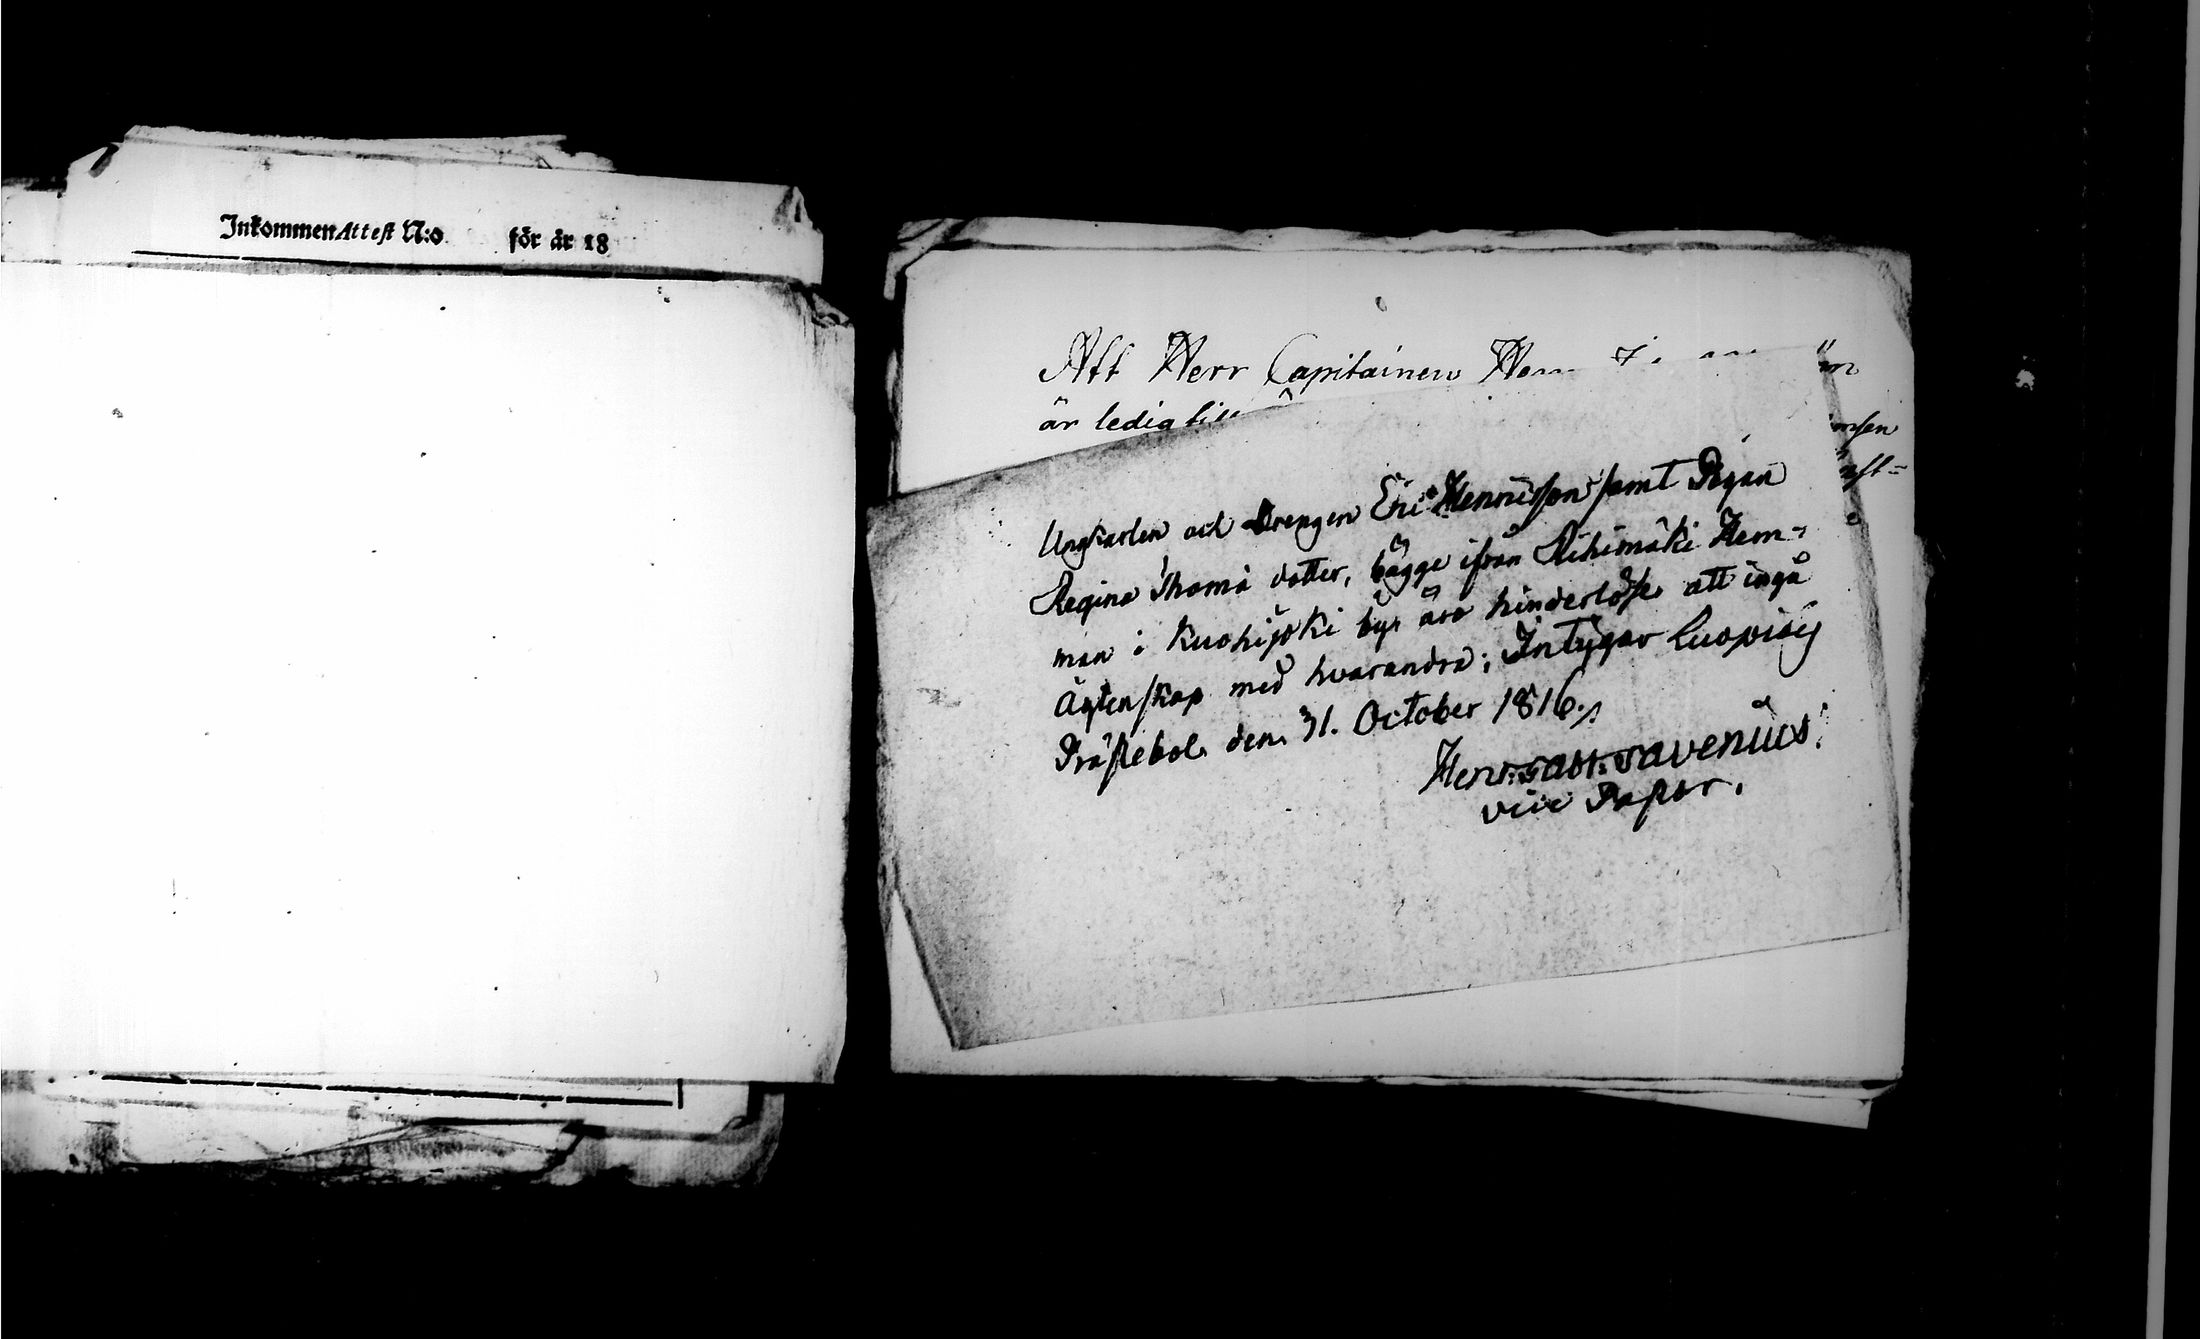 Inkommen Attest N:o för år 18
Att Herr Capitainen
är ledig till
Ungkarlen och Drengen Eric Henricsson samt Pigan
Regina Thomä dotter, bägge ifrån Rihimäki Hem-
man i Kuohijoki by, äro hinderlöse att ingå
Ägtenskap med hvarandra; Intygar Luopioij
Prästebol den 31. October 1816.
Henr: Gabr: Tavenius
vice Pastor.